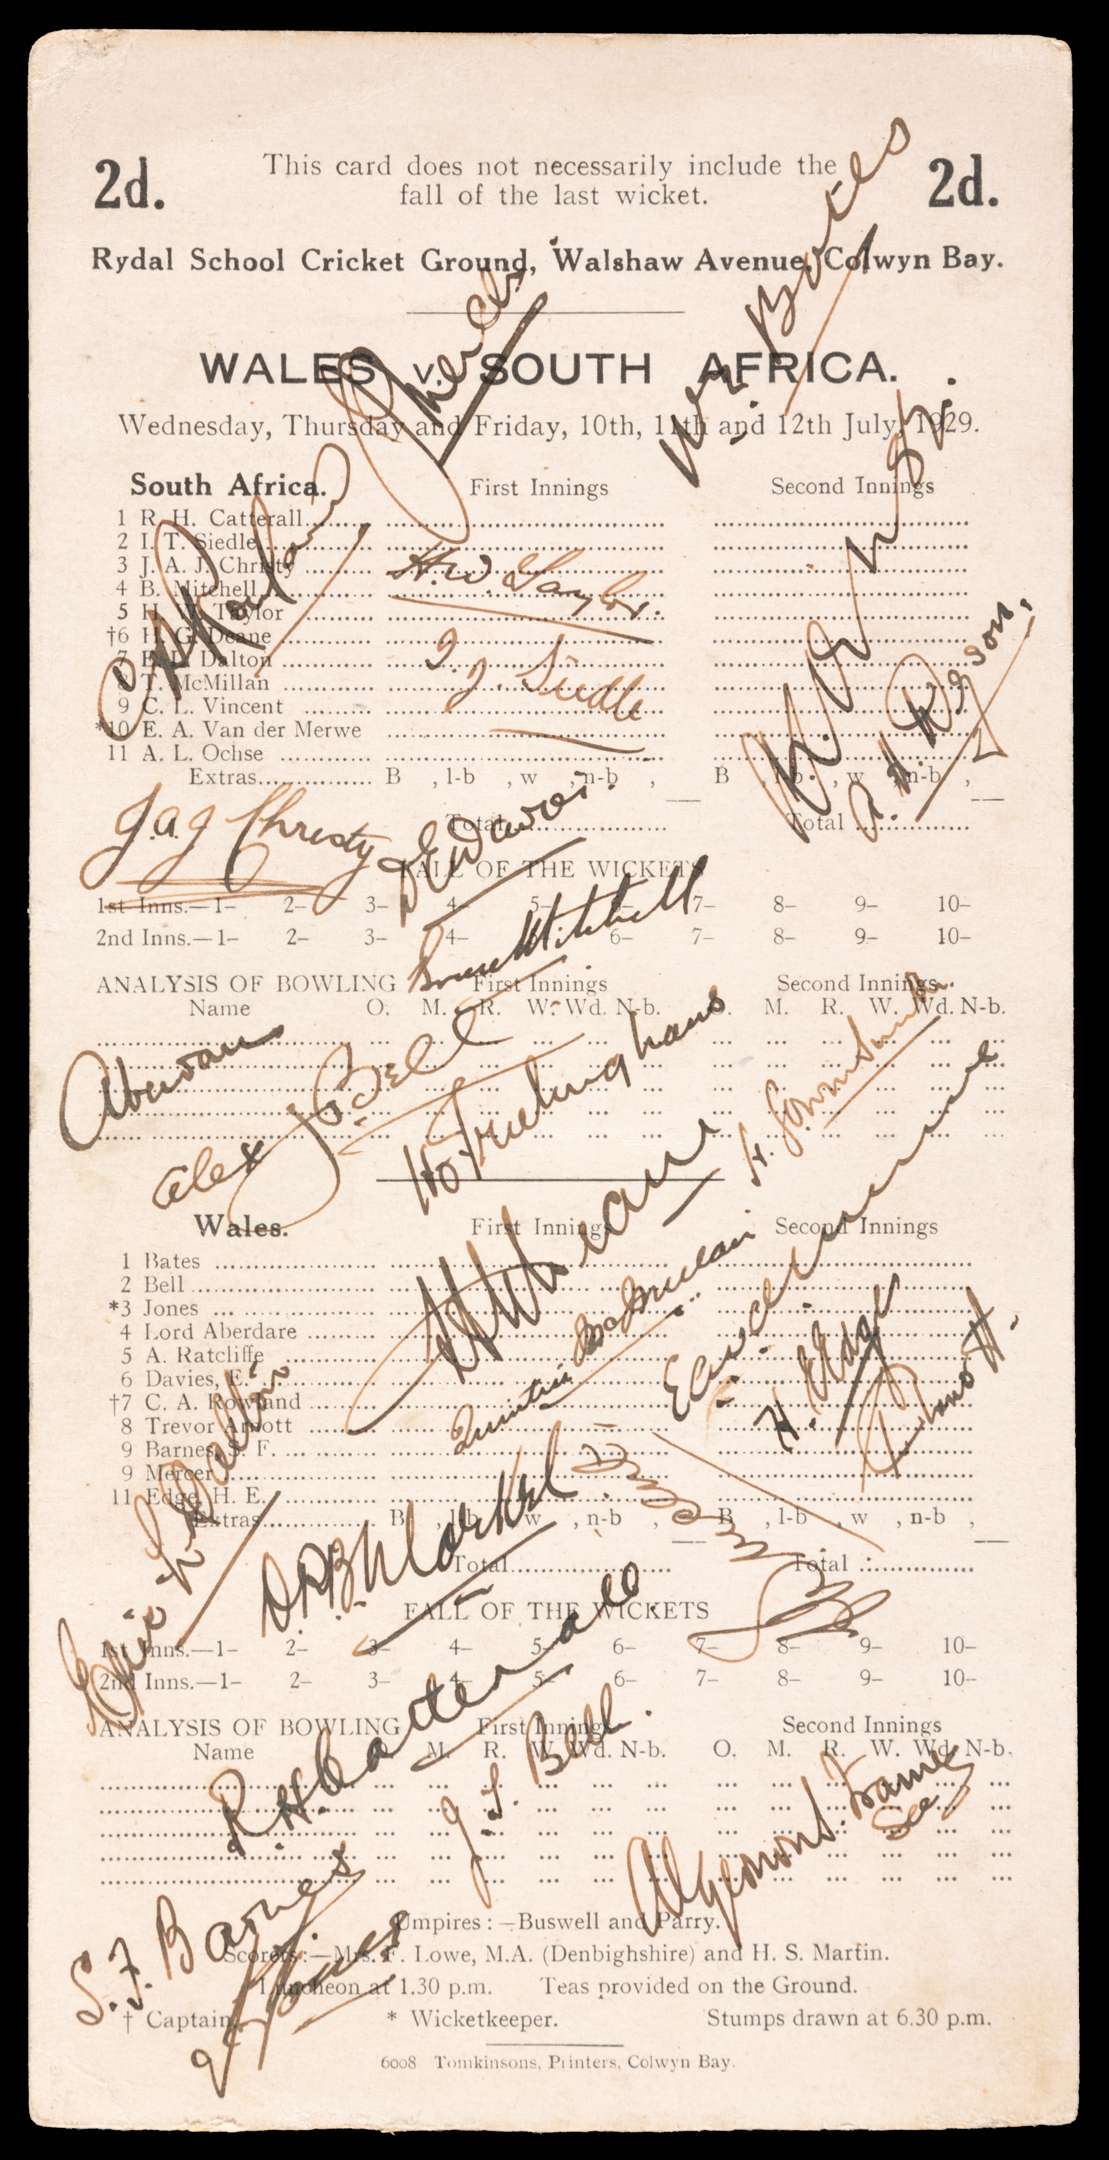 2d. This card does not necessarily include the 2d.
fall of the last wicket.
Rydal School Cricket Ground, Walshaw Avenue, Colwyn Bay.
WALES v. SOUTH AFRICA.
Wednesday, Thursday and Friday, 10th, 11th and 12th July, 1929.
W. Bates
South Africa. First Innings Second Innings
1 R. H. Catterall
2 I. T. Siedle
3 J. A. J. Christy
4 B. Mitchell
5 H. W. Taylor
†6 H. G. Deane
7 E. L. Dalton
8 T. McMillan
9 C. L. Vincent
*10 E. A. Van der Merwe
11 A. L. Ochse
H.W. Taylor.
I. J. Siedle
Extras B , l-b , w , n-b , B , l-b , w , n-b ,
Total Total
J.A.J. Christy
FALL OF THE WICKETS
1st Inns.—1– 2– 3– 4– 5– 6– 7– 8– 9– 10–
2nd Inns.—1– 2– 3– 4– 5– 6– 7– 8– 9– 10–
Bruce Mitchell
ANALYSIS OF BOWLING First Innings Second Innings
Name O. M. R. W. Wd. N-b. O. M. R. W. Wd. N-b.
Aberdare
Alex Bell
Wales. First Innings Second Innings
1 Bates
2 Bell
*3 Jones
4 Lord Aberdare
5 A. Ratcliffe
6 Davies, E.
†7 C. A. Rowland
8 Trevor Arnott
9 Barnes, S. F.
9 Mercer
11 Edge, H. E.
Quintin McMillan
H. E. Edge
T. Arnott
Eric L Dalton
Extras B , l-b , w , n-b , B , l-b , w , n-b ,
Total Total
FALL OF THE WICKETS
1st Inns.—1– 2– 3– 4– 5– 6– 7– 8– 9– 10–
2nd Inns.—1– 2– 3– 4– 5– 6– 7– 8– 9– 10–
ANALYSIS OF BOWLING First Innings Second Innings
Name O. M. R. W. Wd. N-b. O. M. R. W. Wd. N-b.
R.H. Catterall
J. T. Bell.
S. F. Barnes
Umpires :—Buswell and Parry.
Scorers :—Mrs. F. Lowe, M.A. (Denbighshire) and H. S. Martin.
Luncheon at 1.30 p.m. Teas provided on the Ground.
† Captain. * Wicketkeeper. Stumps drawn at 6.30 p.m.
6008 Tomkinsons, Printers, Colwyn Bay.